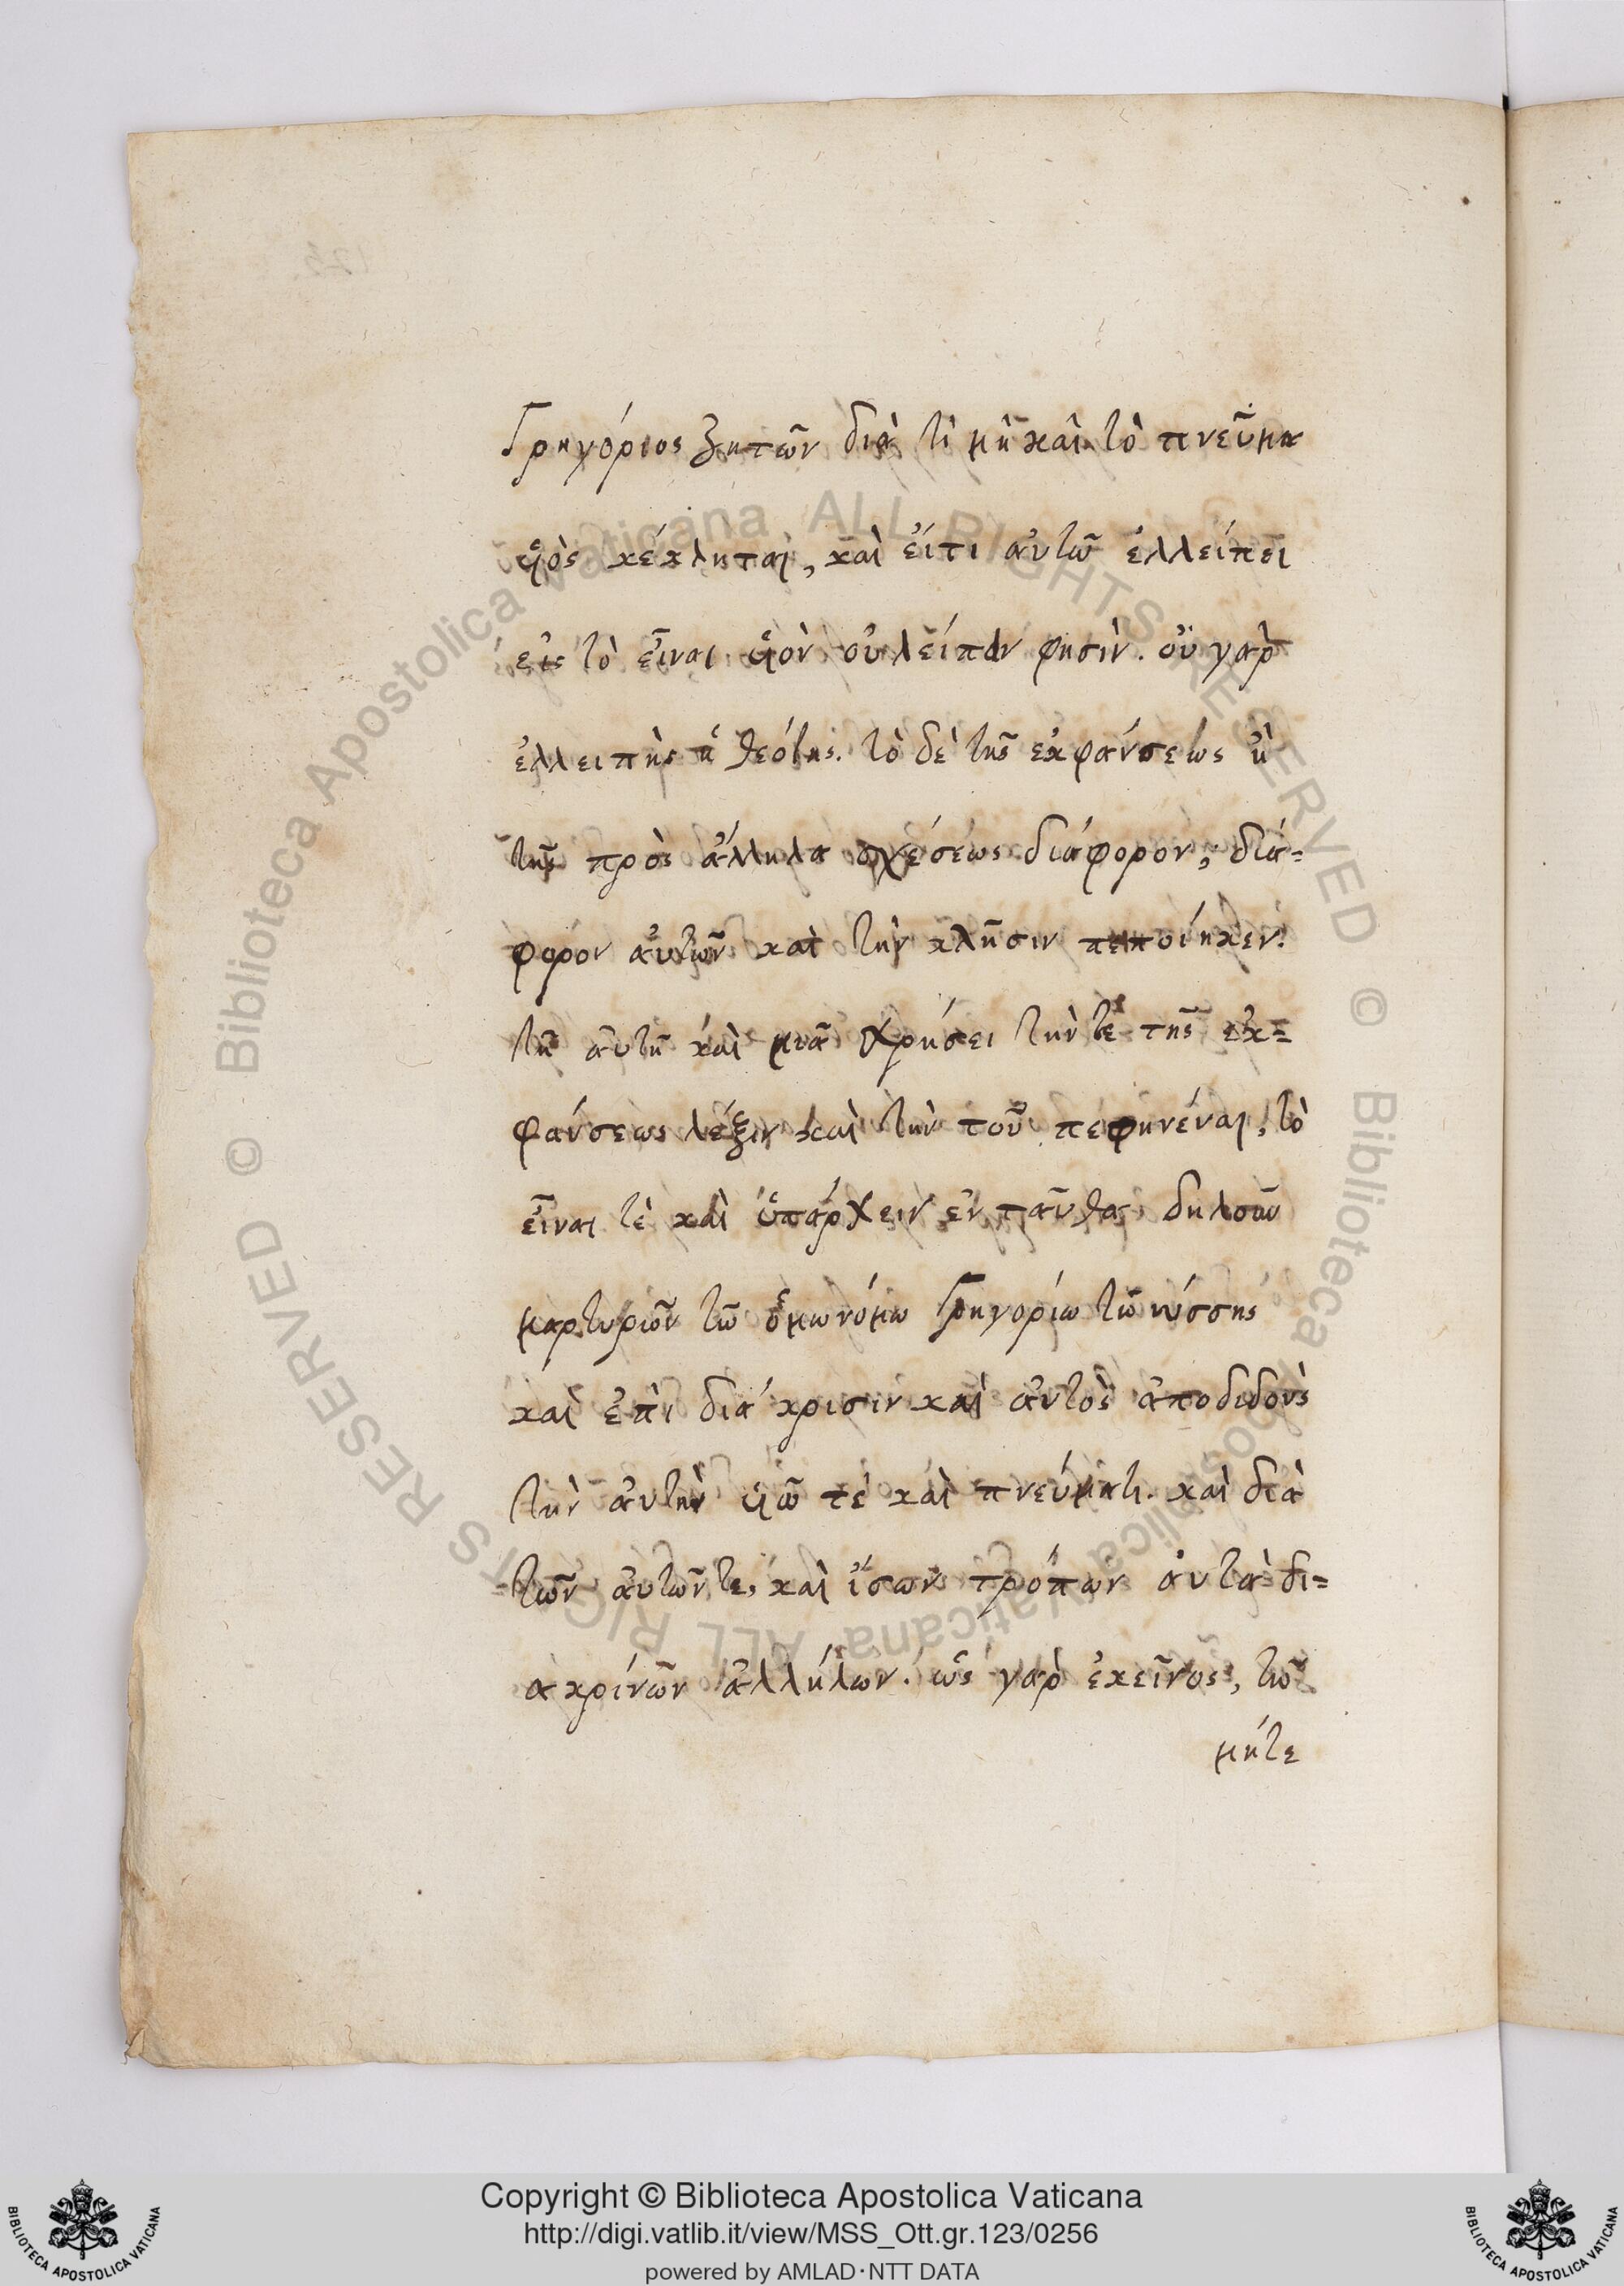 Γρηγόριος ζητῶν διὰ τὶ μὴ καὶ τὸ πνεῦμα
ὑιὸς κέκληται, καὶ εἴτι αὐτῶ ἐλλείπει
εἰς τὸ εἶναι ὑιὸν οὐ λείπειν φησὶν. οὐ γὰρ
ἐλλειπὴς ἡ θεότης. τὸ δὲ τῆς ἐκφάνσεως ἢ
τῆς πρὸς ἄλληλα σχέσεως διάφορον, διά=
φορον αὐτῶν καὶ τὴν κλῆσιν πεποίηκεν.
τῆ αὐτῆ καὶ μιᾶ χρήσει τὴν τε τῆς ἐκ=
φάνσεως λέξιν καὶ τὴν τοῦ πεφηνέναι, τὸ
εἶναι τὲ καὶ ὑπάρχειν ἐνταῦθα δηλοῦν
μαρτυριῶν τῶ ὁμωνόμω Γρηγορίω τῶ νύσσης
καὶ ἐπὶ διάκρισιν καὶ αὐτὸς ἀποδιδοὺς
τὴν αὐτὴν ὑιῶ τέ καὶ πνεύματι. καὶ διὰ
τῶν αὐτῶν τε, καὶ ἴσων τρόπων αὐτὰ δι=
ακρίνῶν ἀλλήλων. ὡς γαρ ἐκεῖνος, τῶ
μήτε
Copyright © Biblioteca Apostolica Vaticana
http://digi.vatlib.it/view/MSS_Ott.gr.123/0256
powered by AMLAD·NTT DATA
© Biblioteca Apostolica Vaticana ALL RIGHTS RESERVED
© Biblioteca Apostolica Vaticana ALL RIGHTS RESERVED
BIBLIOTECA APOSTOLICA VATICANA
BIBLIOTECA APOSTOLICA VATICANA